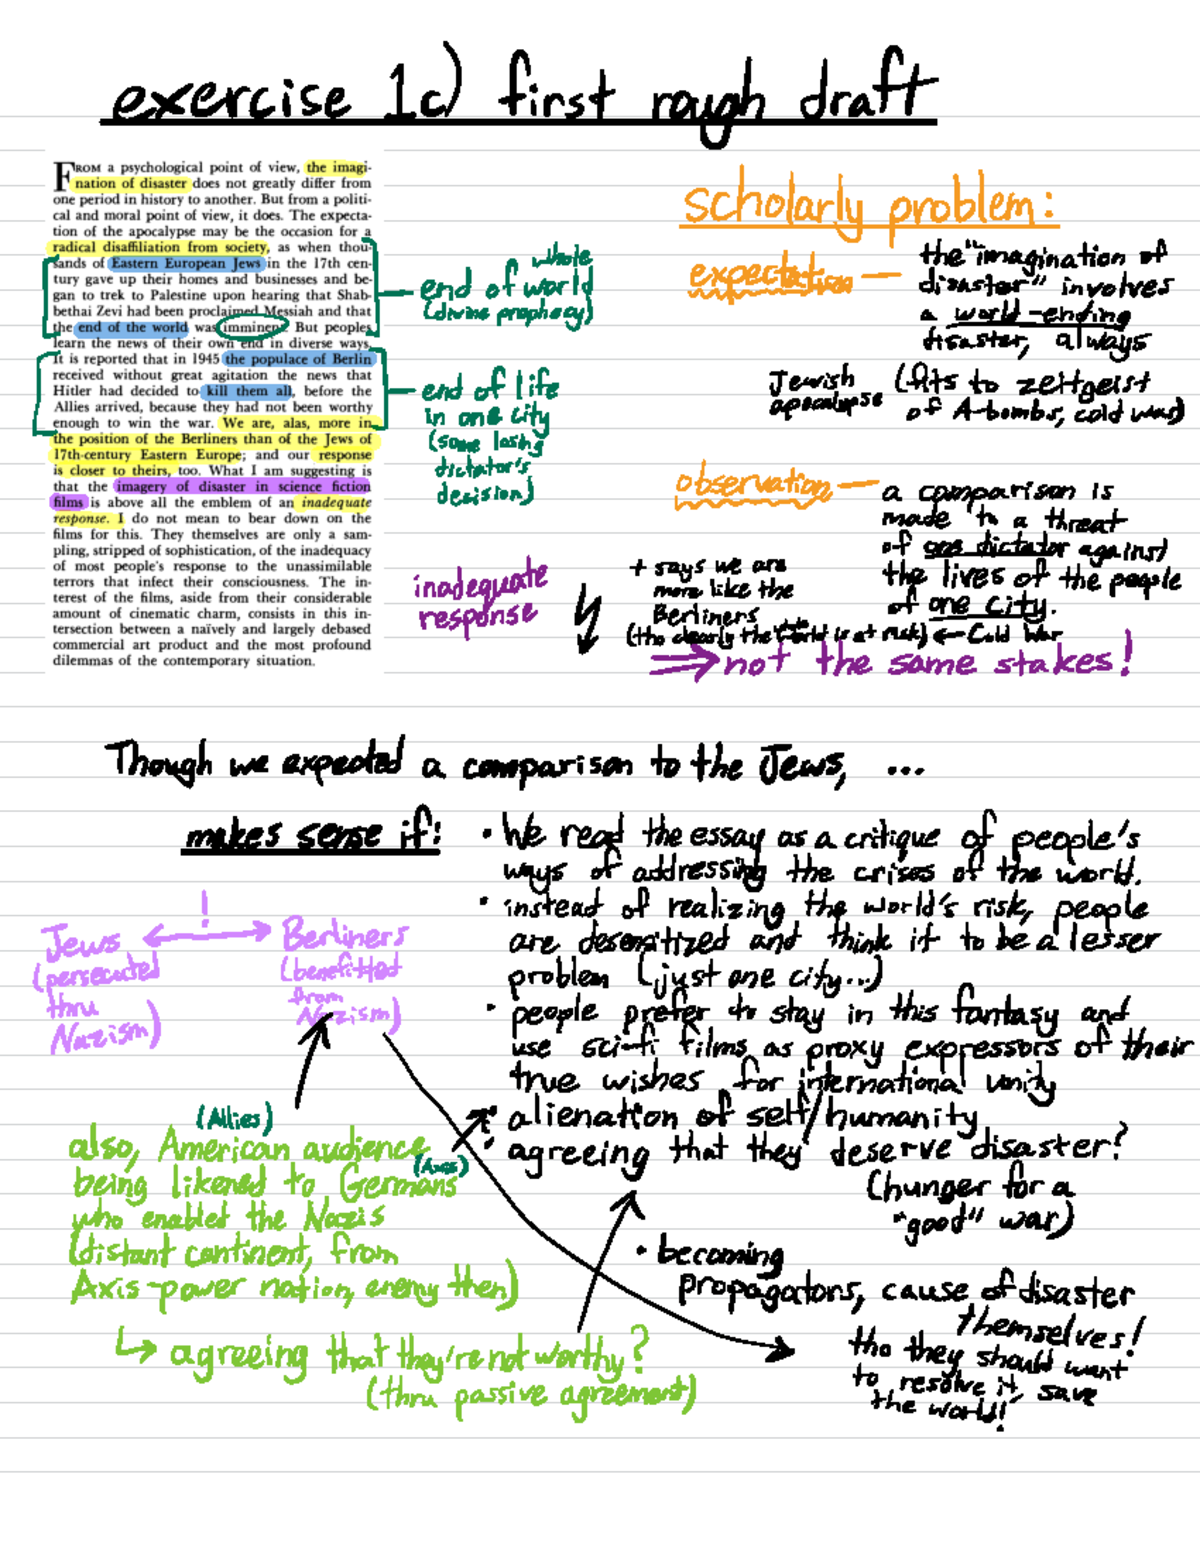 exercise 1c) first rough draft
FROM a psychological point of view, the imagi-
nation of disaster does not greatly differ from
one period in history to another. But from a politi-
cal and moral point of view, it does. The expecta-
tion of the apocalypse may be the occasion for a
radical disaffiliation from society, as when thou-
sands of Eastern European Jews in the 17th cen-
tury gave up their homes and businesses and be-
gan to trek to Palestine upon hearing that Shab-
bethai Zevi had been proclaimed Messiah and that
the end of the world was imminent. But peoples
learn the news of their own end in diverse ways.
It is reported that in 1945 the populace of Berlin
received without great agitation the news that
Hitler had decided to kill them all, before the
Allies arrived, because they had not been worthy
enough to win the war. We are, alas, more in
the position of the Berliners than of the Jews of
17th-century Eastern Europe; and our response
is closer to theirs, too. What I am suggesting is
that the imagery of disaster in science fiction
films is above all the emblem of an inadequate
response. I do not mean to bear down on the
films for this. They themselves are only a sam-
pling, stripped of sophistication, of the inadequacy
of most people's response to the unassimilable
terrors that infect their consciousness. The in-
terest of the films, aside from their considerable
amount of cinematic charm, consists in this in-
tersection between a naïvely and largely debased
commercial art product and the most profound
dilemmas of the contemporary situation.
whole
end of world
(divine prophecy)
end of life
in one city
(some losing
dictator's
decision)
inadequate
response
scholarly problem:
expectation —
the "imagination of
disaster" involves
a world-ending
disaster, always
Jewish
apocalypse
(fits to zeitgeist
of A-bombs, cold war)
observation —
a comparison is
made to a threat
of one dictator against
the lives of the people
of one city.
+ says we are
more like the
Berliners
(tho clearly the whole world is at risk) ← Cold War
⇒ not the same stakes!
Though we expected a comparison to the Jews, ...
makes sense if:
• We read the essay as a critique of people's
ways of addressing the crises of the world.
• instead of realizing the world's risk, people
are desensitized and think it to be a lesser
problem (just one city...)
• people prefer to stay in this fantasy and
use sci-fi films as proxy expressors of their
true wishes for international unity
• alienation of self/humanity
• agreeing that they deserve disaster?
(hunger for a
"good" war)
• becoming
propagators, cause of disaster
themselves!
tho they should want
to resolve it, save
the world!
!
Jews ↔ Berliners
(persecuted
thru
Nazism)
(benefitted
from
Nazism)
(Allies)
also, American audience
(Axis)
being likened to Germans
who enabled the Nazis
(distant continent, from
Axis-power nation, enemy then)
↳ agreeing that they're not worthy?
(thru passive agreement)